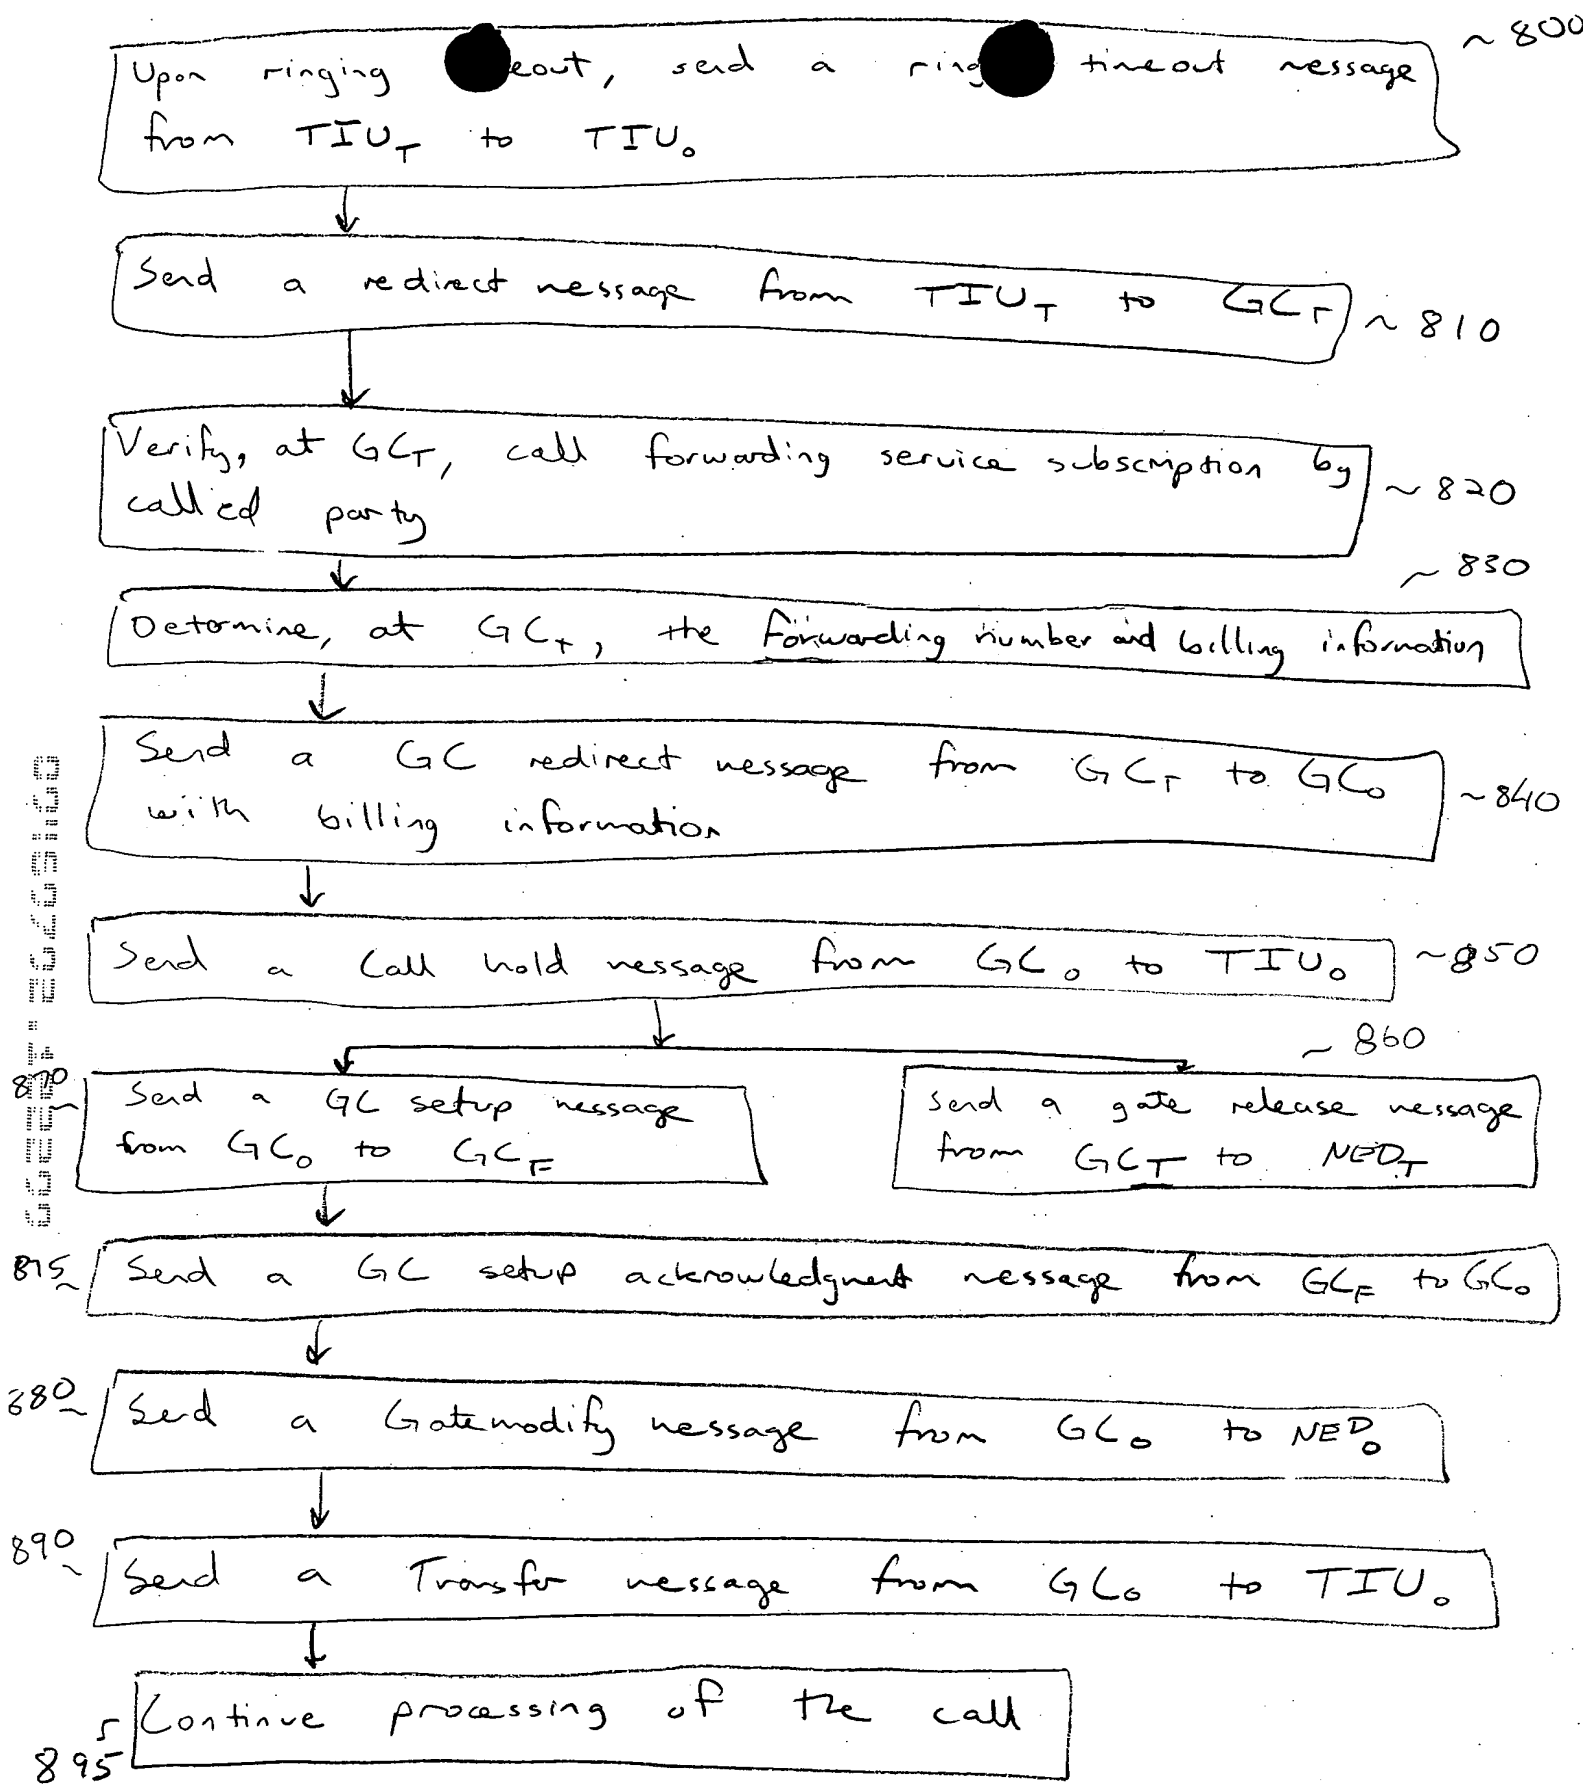 ~ 800
Upon ringing eout, send a ring timeout message
from TIU_T to TIU_o
Send a redirect message from TIU_T to GC_T
~ 810
Verify, at GC_T, call forwarding service subscription by
called party
~ 820
~ 830
Determine, at GC_T, the forwarding number and billing information
Send a GC redirect message from GC_T to GC_o
with billing information
~ 840
Send a Call hold message from GC_o to TIU_o
~ 850
~ 860
870
Send a GC setup message
from GC_o to GC_F
Send a gate release message
from GC_T to NED_T
875
Send a GC setup acknowledgment message from GC_F to GC_o
880
Send a Gatemodify message from GC_o to NED_o
890
Send a Transfer message from GC_o to TIU_o
Continue processing of the call
895